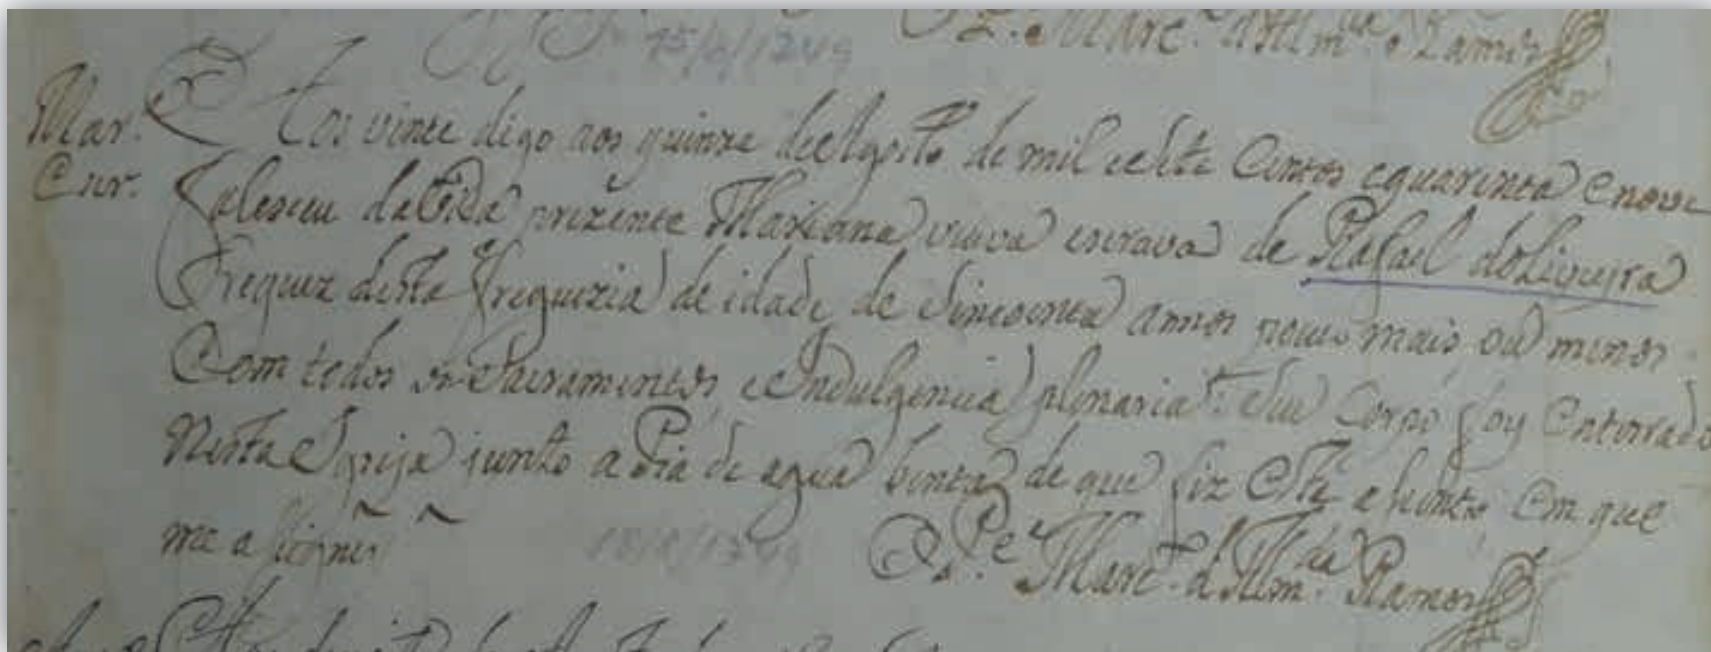 15/8/1749
Pe. Marc. d Alm.da Ramos
Mar. Aos vinte digo aos quinze de Agosto de mil e Sete Centos e quarenta e nove
Cur. falesceu da Vida prezente Mariana viuva escrava de Rafael d oLiveyra
Freguez desta freguezia de idade de Sincoenta annos pouco mais ou menos
Com todos os Sacramentos e Indulgencia plenaria. Seu Corpo foy Enterrado
Nesta Igreja junto a Pia de agua benta de que fiz Este asento, Em que
me asigney
15/8/1749
O Pe. Marc. d Alm.da Ramos